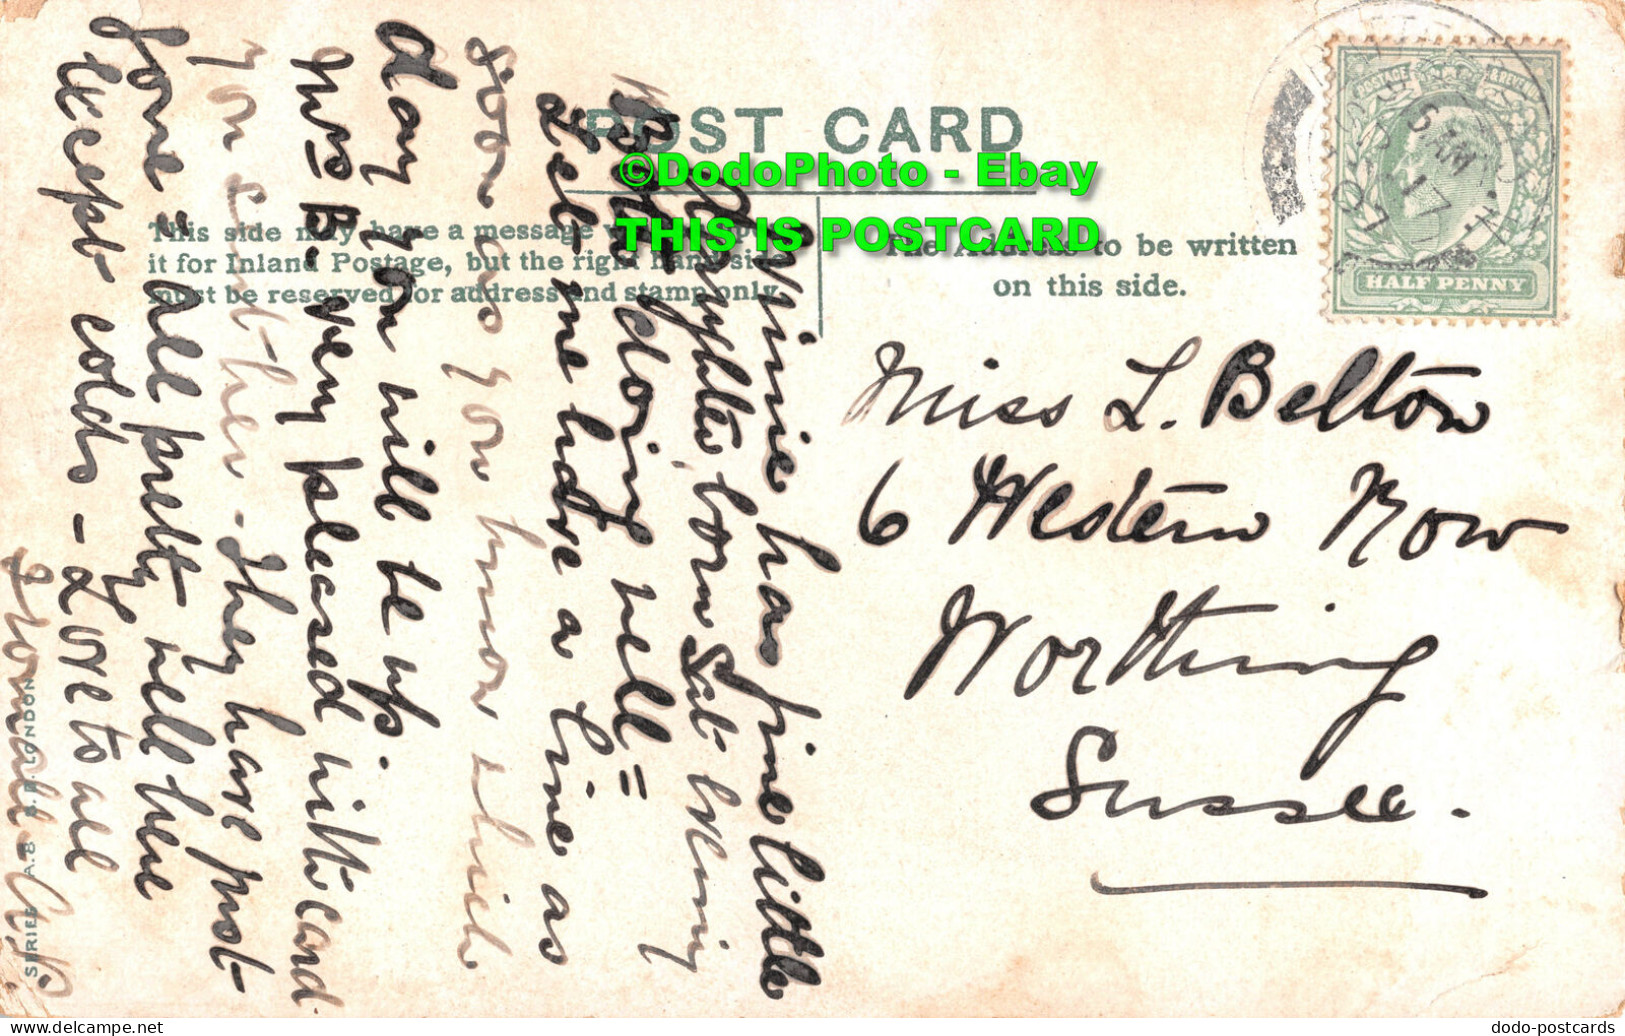 POST CARD
©DodoPhoto - Ebay
THIS IS POSTCARD
This side may have a message
it for Inland Postage, but the right hand side
must be reserved for address and stamp only.
The Address to be written
on this side.
POSTAGE & REVENUE
HALF PENNY
6 AM
17
07
Winnie has fine little
daughter, born Sat- evening
Both doing well =
Let me have a line as
soon as you know which
day you will be up.
Mrs B. very pleased with card
you sent her - They have just
gone - all pretty well here
except colds - Love to all
Miss L. Belton
6 Western Row
Worthing
Sussex.
SERIES A. & LONDON
dodo-postcards